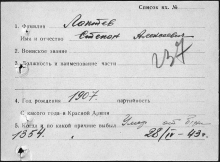 Список вх. №
1. Фамилия Лаптев
Имя и отчество Степан Алексеевич
2. Воинское звание
3. Должность и наименование части
237
4. Год рождения 1907. партийность
С какого года в Красной Армии
5. Когда и по какой причине выбыл Умер от
1354. 28/IV-43г.